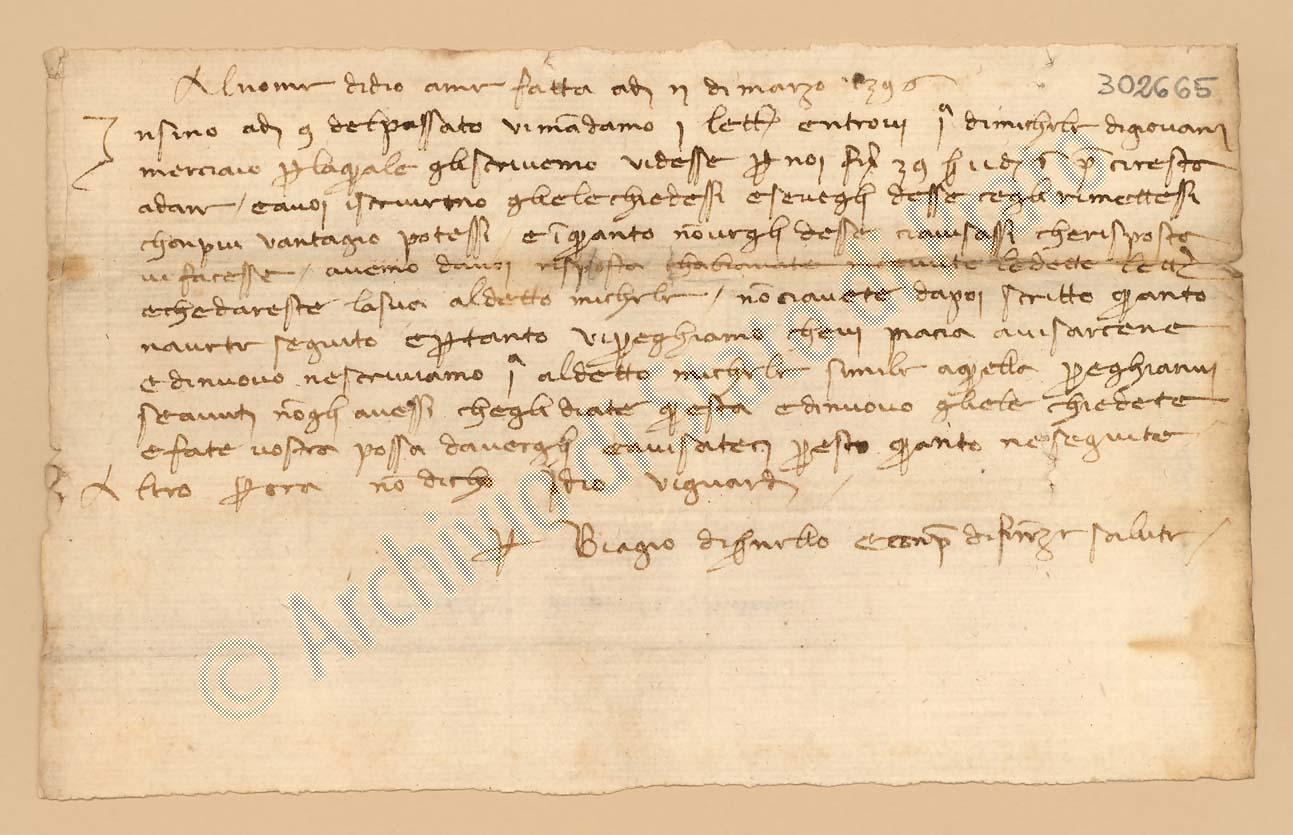 302665
Al nome didio ame fatta adi 11 di marzo 1396
Insino adi 9 delpassato vi mãdamo 1 lettª entrovi 1ª dimichele digiovani
merciaio plaquale gliscrivemo videsse p noi fi 39 ciresto
adare / eavoi iscrivemo glielechiedessi esevegli desse cegli rimettessi
chonpiu vantagio potessi / e ĩquanto nõvegli desse ciavisassi cherisposto
vi facesse / avemo davoi risposta chabiavate ricevute ledette lettʳ
echedareste lasua aldetto michele / nõciavete dapoi scritto quanto
navete seguito eptanto vipreghiamo chevi piacia avisarcene
edinuovo nescriviamo 1ª aldetto michele simile aquella preghianvi
seavuti nõgli avessi chegli diate questa edinuovo gliele chiedete
efate vostra possa davergli eavisateci presto quanto neseguite
Altro p ora nõ dicho Idio vi guardi
p Biagio di enp di firenze salute /
© Archivio di Stato di Prato